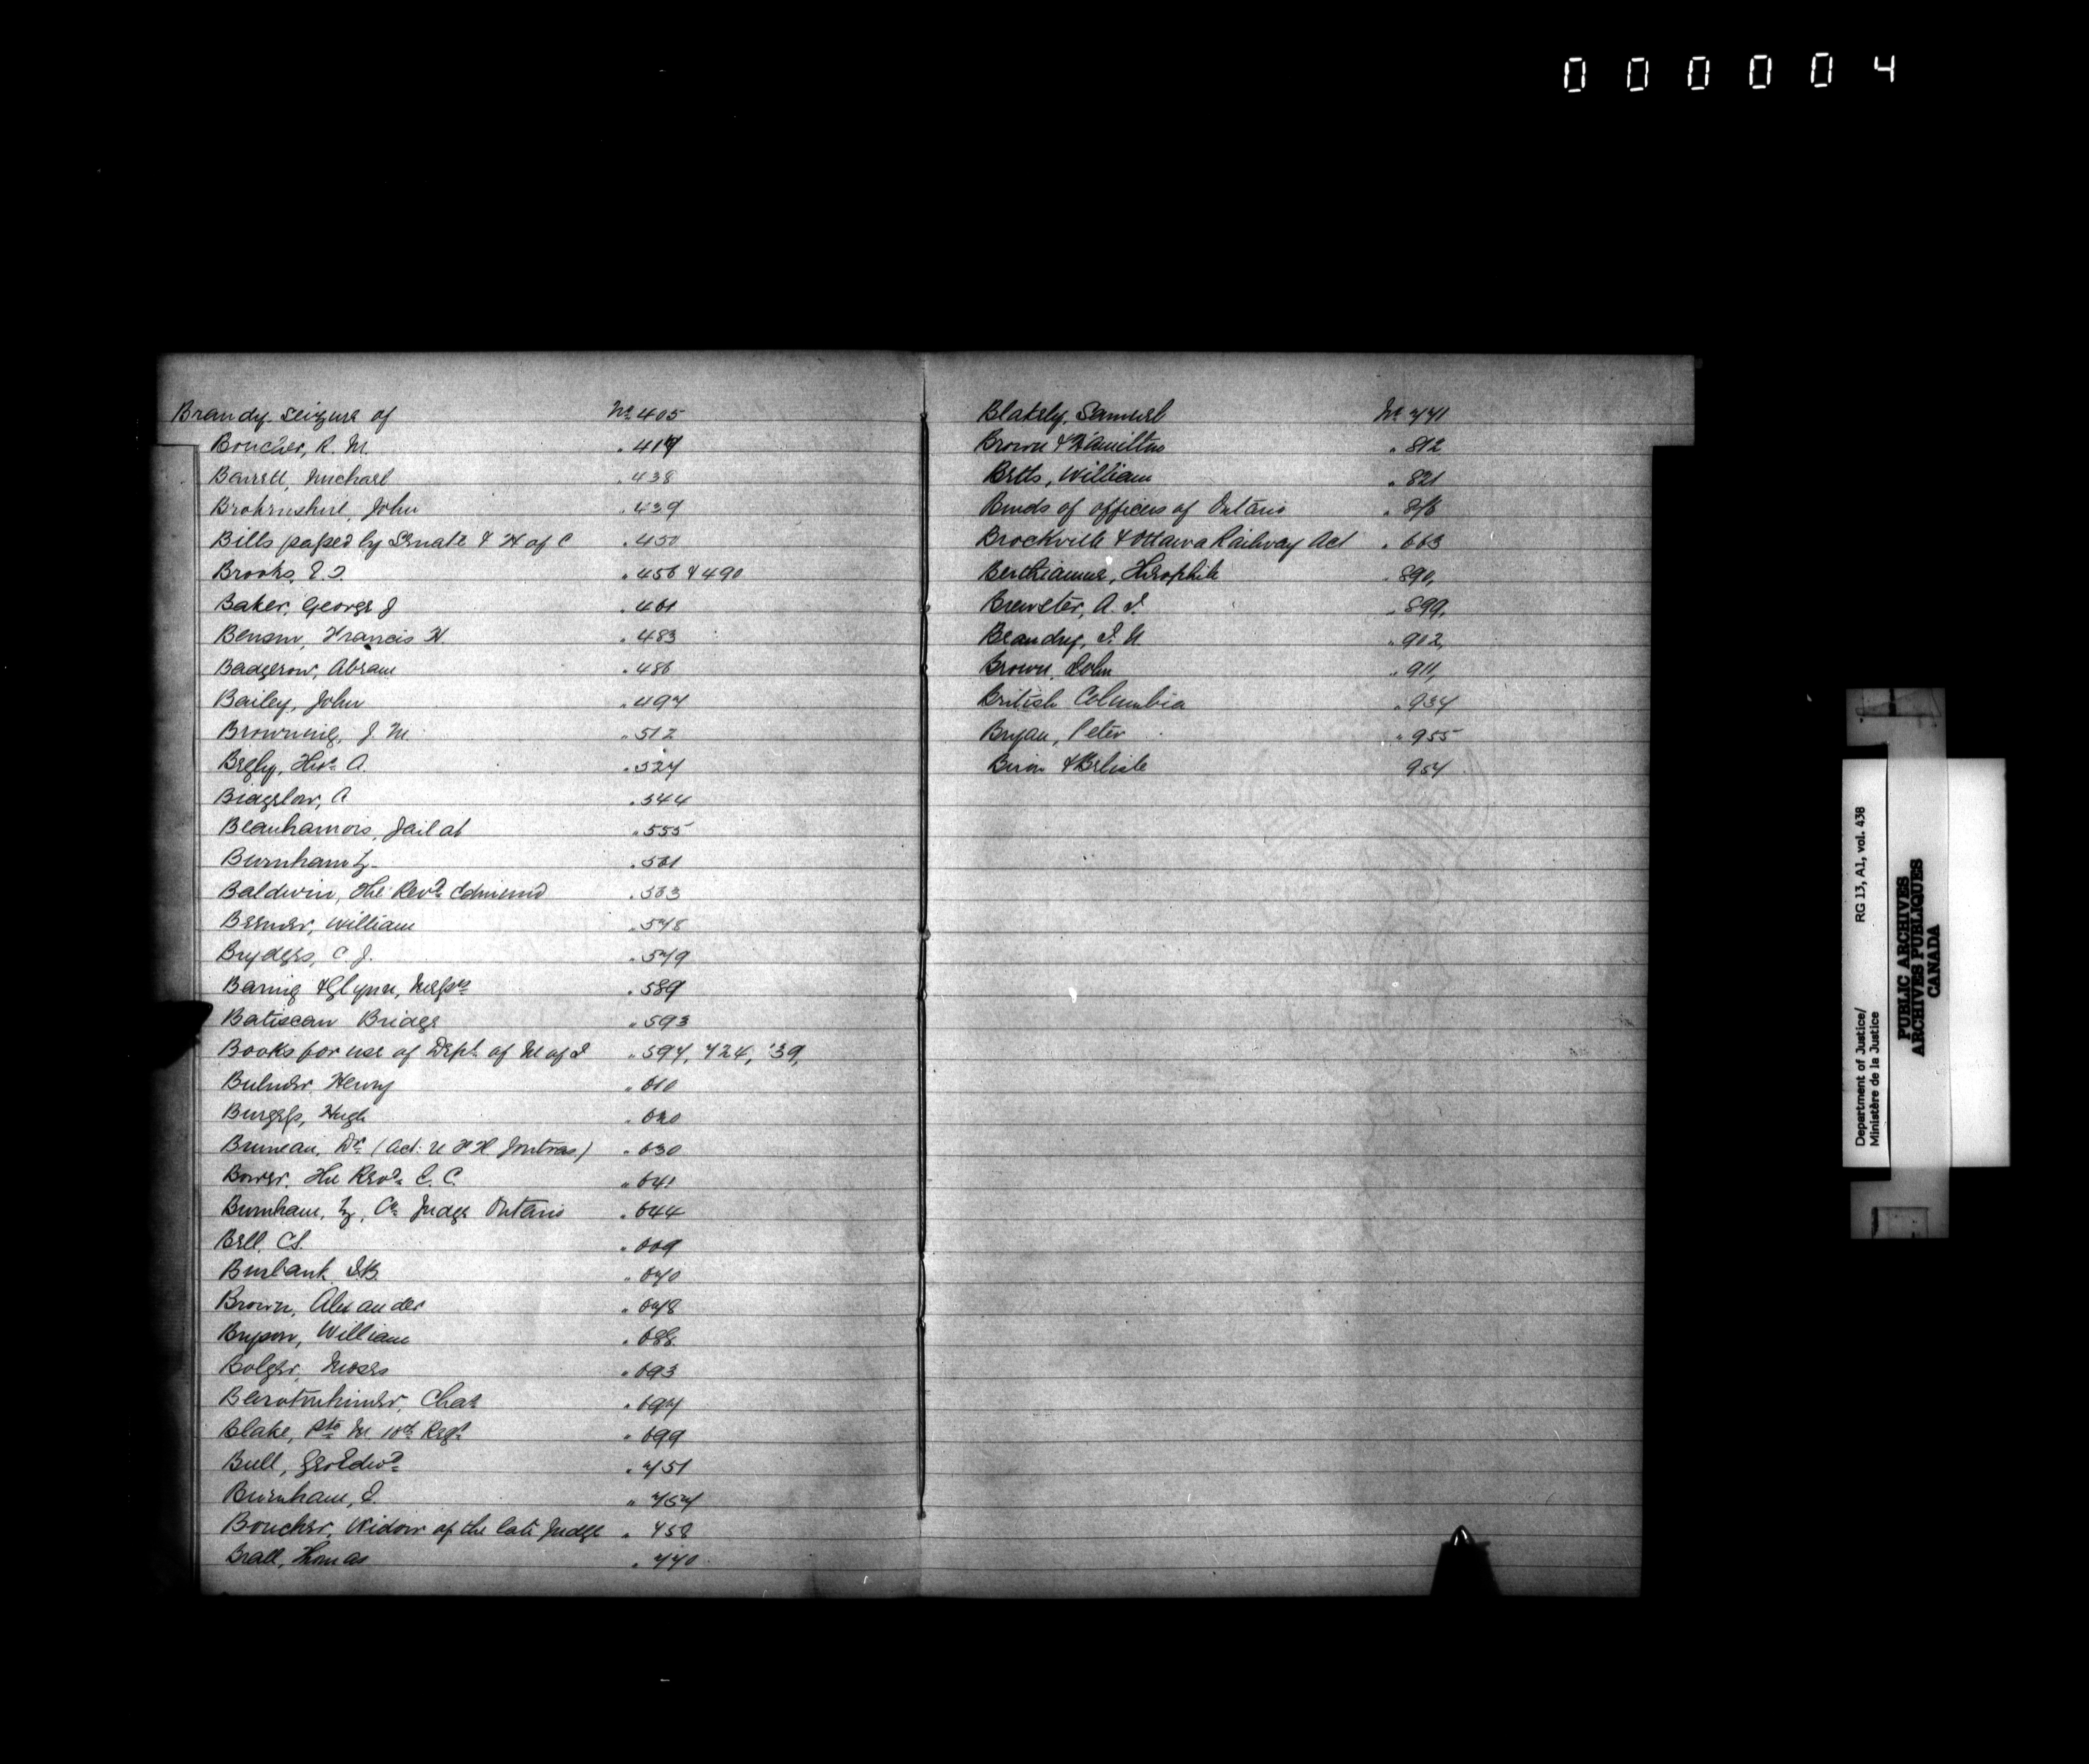 000004
Brandy, Seizure of No 405
Boucher, R. M. " 417
Barrett, Michael " 438
John " 439
Bills passed by Senate & H of C " 450
Brooks, E. J. " 456 & 490
Baker, George J " 461
Benson, Francis H. " 483
Badgerow, Abram " 486
Bailey, John " 497
Browning, J M. " 512
Begly, Thos. A. " 527
Bigelow, A " 544
Beauharnois, Jail at " 555
Burnham Z. " 561
Baldwin, The Revd. Edmund " 563
William " 578
Brydges, C. J. " 579
Baring & Glynn, Messrs " 589
Batiscan Bridge " 593
Books for use of Dept. of M of J " 597, 724, '39,
Bulmer Henry " 610
Burgess, Hugh " 620
Bruneau, Dr. (Act: U & H Jontras) " 630
Bower. The Revd. E. C. " 641
Burnham, Z, Co. Judge Ontario " 644
Bell. CS. " 669
Burbank. " 670
Brown, Alexander " 678
Bryson, William " 688.
Bolger, Moses " 693
Chas " 697
Blake, Pte M. Regt " 699
Bull, Geo Edwd. " 751
Burnham, " 757
Boucher, Widow of the late Judge " 758
Beall, Thomas " 770
Blakely, Samuel No 771
Brown & Hamilton " 812
Betts, William " 821
Bonds of officers of Ontario "
Brockville & Ottawa Railway Act " 663
Berthiaume, Theophile " 890,
Brewster, A. " 899,
Beaudry, " 902,
Brown, John " 911,
British Columbia " 937
Bryan, Peter " 955
Biron & Belisle 957
RG 13, A1, vol. 438
Department of Justice/
Ministère de la Justice
PUBLIC ARCHIVES
ARCHIVES PUBLIQUES
CANADA